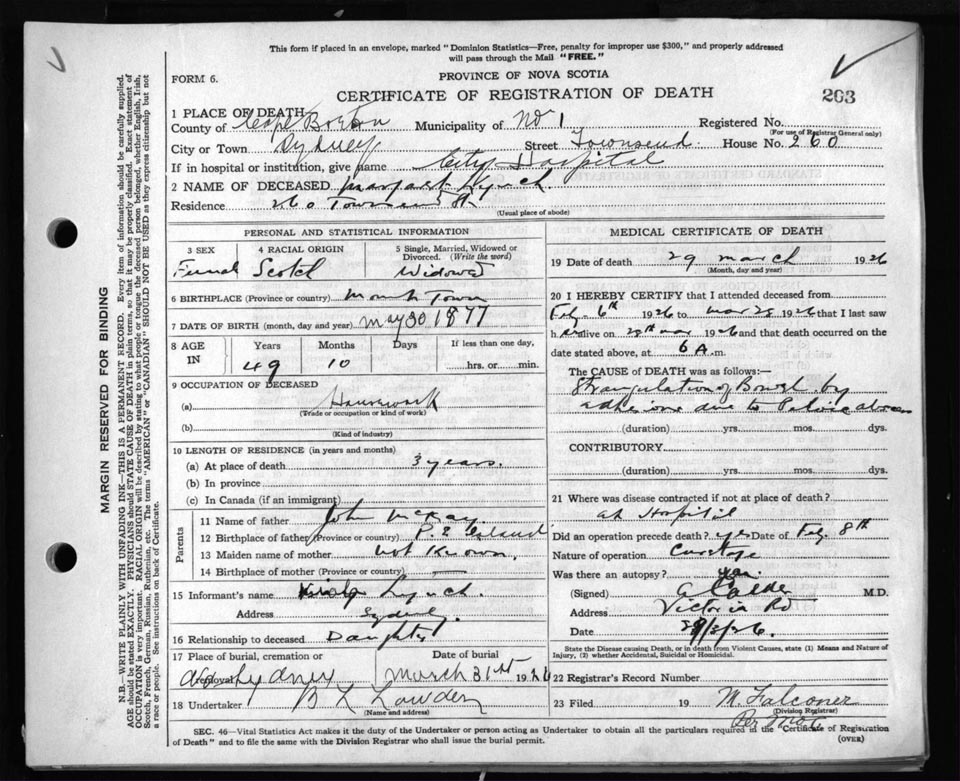 This form if placed in an envelope, marked "Dominion Statistics—Free, penalty for improper use $300," and properly addressed
will pass through the Mail "FREE."
FORM 6.
PROVINCE OF NOVA SCOTIA
CERTIFICATE OF REGISTRATION OF DEATH
263
MARGIN RESERVED FOR BINDING
N.B.—WRITE PLAINLY WITH UNFADING INK—THIS IS A PERMANENT RECORD. Every item of information should be carefully supplied.
AGE should be stated EXACTLY. PHYSICIANS should STATE CAUSE OF DEATH in plain terms, so that it may be properly classified. Exact statement of
OCCUPATION is very important. RACIAL ORIGIN will be described by stating to what people or tongue the deceased person belonged, whether English, Irish,
Scotch, French, German, Russian, Ruthenian, etc. The terms "AMERICAN" or "CANADIAN" SHOULD NOT BE USED as they express citizenship but not
a race or people. See instructions on back of Certificate.
1 PLACE OF DEATH
County of Cape Breton Municipality of No 1 Registered No.
(For use of Registrar General only)
City or Town Sydney Street Townsend House No. 260
If in hospital or institution, give name City Hospital
2 NAME OF DECEASED Margaret Lynch
Residence 260 Townsend St
(Usual place of abode)
PERSONAL AND STATISTICAL INFORMATION
3 SEX 4 RACIAL ORIGIN 5 Single, Married, Widowed or Divorced. (Write the word)
Scotch Widowed
6 BIRTHPLACE (Province or country)
7 DATE OF BIRTH (month, day and year) May 30 1877
8 AGE IN Years Months Days If less than one day,
49 10 hrs. or min.
9 OCCUPATION OF DECEASED
(a) Housework
(Trade or occupation or kind of work)
(b)
(Kind of industry)
10 LENGTH OF RESIDENCE (in years and months)
(a) At place of death 3 years.
(b) In province
(c) In Canada (if an immigrant)
Parents
11 Name of father John McKay
12 Birthplace of father (Province or country) P. E Island
13 Maiden name of mother not Known.
14 Birthplace of mother (Province or country) —
15 Informant's name Lynch.
Address Sydney
16 Relationship to deceased Daughter
17 Place of burial, cremation or removal Date of burial
March 31st 1926
18 Undertaker
(Name and address)
MEDICAL CERTIFICATE OF DEATH
19 Date of death 29 March 1926
(Month, day and year)
20 I HEREBY CERTIFY that I attended deceased from
Feb. 6th 1926 to Mar 28 1926 that I last saw
her alive on 28th Mar 1926 and that death occurred on the
date stated above, at 6 A. m.
The CAUSE of DEATH was as follows:—
Strangulation of Bowel by
adhesions due to Pelvic abscess
(duration) yrs. mos. dys.
CONTRIBUTORY.
(duration) yrs. mos. dys.
21 Where was disease contracted if not at place of death?
at Hospital
Did an operation precede death? yes Date of Feb. 8th
Nature of operation
Was there an autopsy?
(Signed) M.D.
Address Victoria Rd
Date 29/3/26.
State the Disease causing Death, or in death from Violent Causes, state (1) Means and Nature of
Injury, (2) whether Accidental, Suicidal or Homicidal.
22 Registrar's Record Number
23 Filed 19 M. Falconer
(Division Registrar)
SEC. 46—Vital Statistics Act makes it the duty of the Undertaker or person acting as Undertaker to obtain all the particulars required in the "Certificate of Registration
of Death" and to file the same with the Division Registrar who shall issue the burial permit.
(OVER)